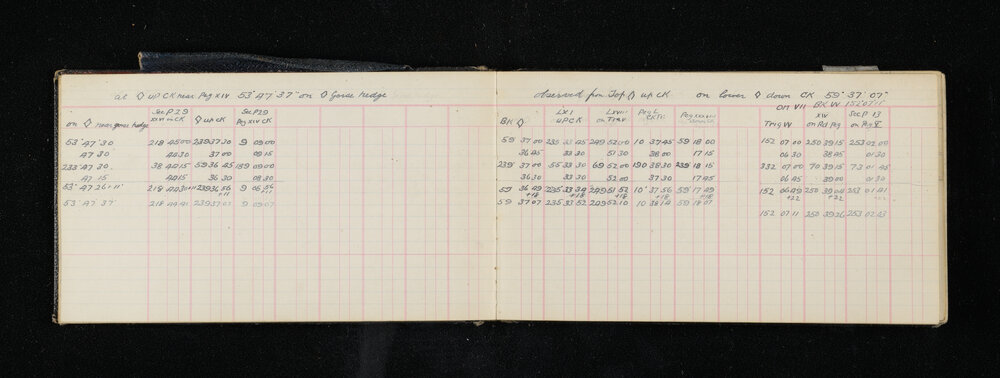 at ◊ up CK near Peg XIV 53° 47' 37" on ◊ Gorse hedge
See P 29 See P 29
on ◊ near gorse hedge XVI in CK ◊ up CK Peg XIV CK
53° 47' 30 218 45 00 239 37 30 9 09 00
47 30 44 30 37 00 09 15
233° 47 30 38 44 15 59 36 45 189 09 00
47 15 44 15 36 30 08 30
53° 47 26 + 11" 218 44 30 239 36 56 9 08 56
+11
53° 47' 37" 218 44 41 239 37 07 9 09 07
observed from Top ◊ up CK on lower ◊ down CK 59° 37' 07"
on VII BK W 152° 07' 11"
LXI LXVII Peg L XIV See P 13
BK ◊ up CK on Trav Trig W on Rd Peg on Peg V
59 37 00 235 33 45 249 52 00 10 37 45 59 18 00 152 07 00 250 39 15 253 02 00
36 45 33 30 51 30 38 00 17 15 06 30 38 45 01 30
239° 37 00 55 33 30 69 52 00 190 38 30 239 18 15 332 07 00 70 39 15 73 01 45
36 30 33 30 52 00 37 30 17 45 06 45 39 00 01 30
59 36 49 235 33 34 249 51 52 10° 37 56 59 17 49 152 06 49 250 39 04 253 01 41
+18 +18 +18 +18 +18 +22 +22 +22
59 37 07 235 33 52 249 52 10 10 38 14 59 18 07
152 07 11 250 39 26 253 02 03